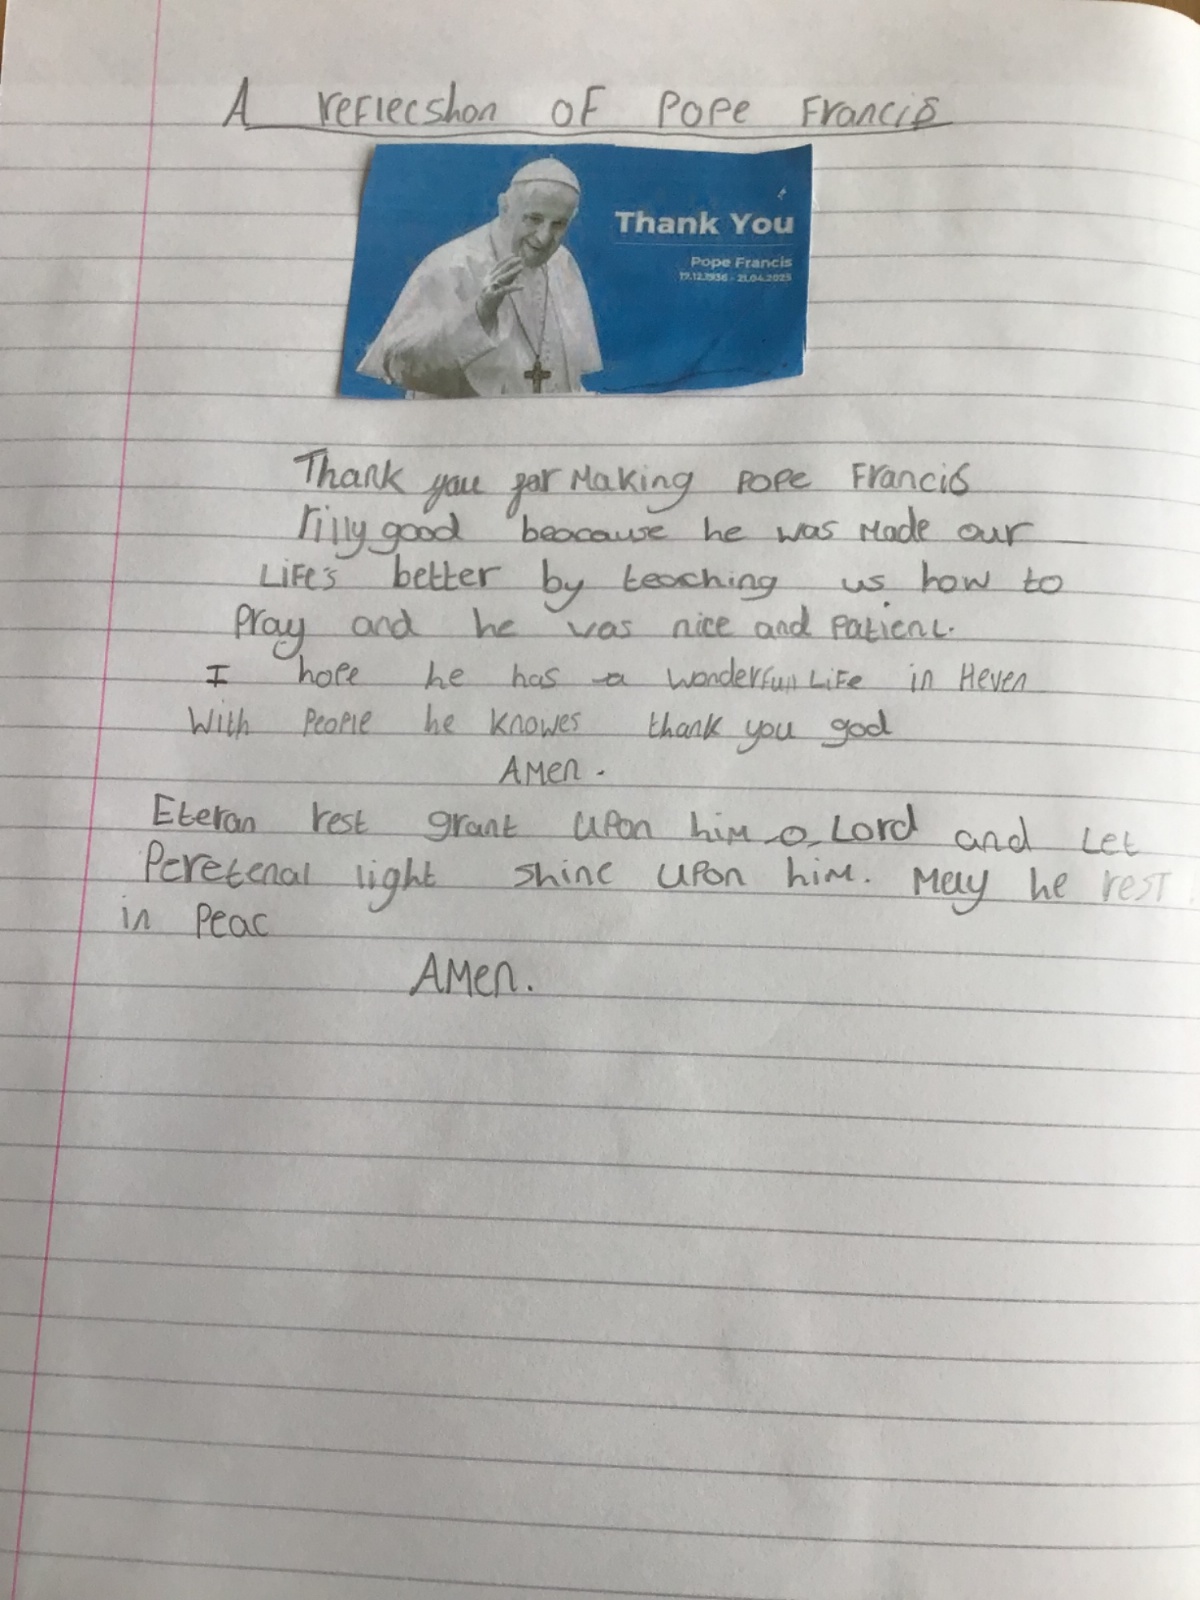 A reflecshon of Pope Francis
Thank You
Pope Francis
17.12.1936 - 21.04.2025
Thank you for Making Pope Francis
rilly good beacause he was Made our
Life's better by teaching us how to
Pray and he was nice and patient.
I hope he has a wonderfull Life in Heven
With People he Knowes thank you god
AMen.
Eteran rest grant upon him o Lord and Let
Peretenal light shine upon him. May he rest
in Peac
AMen.